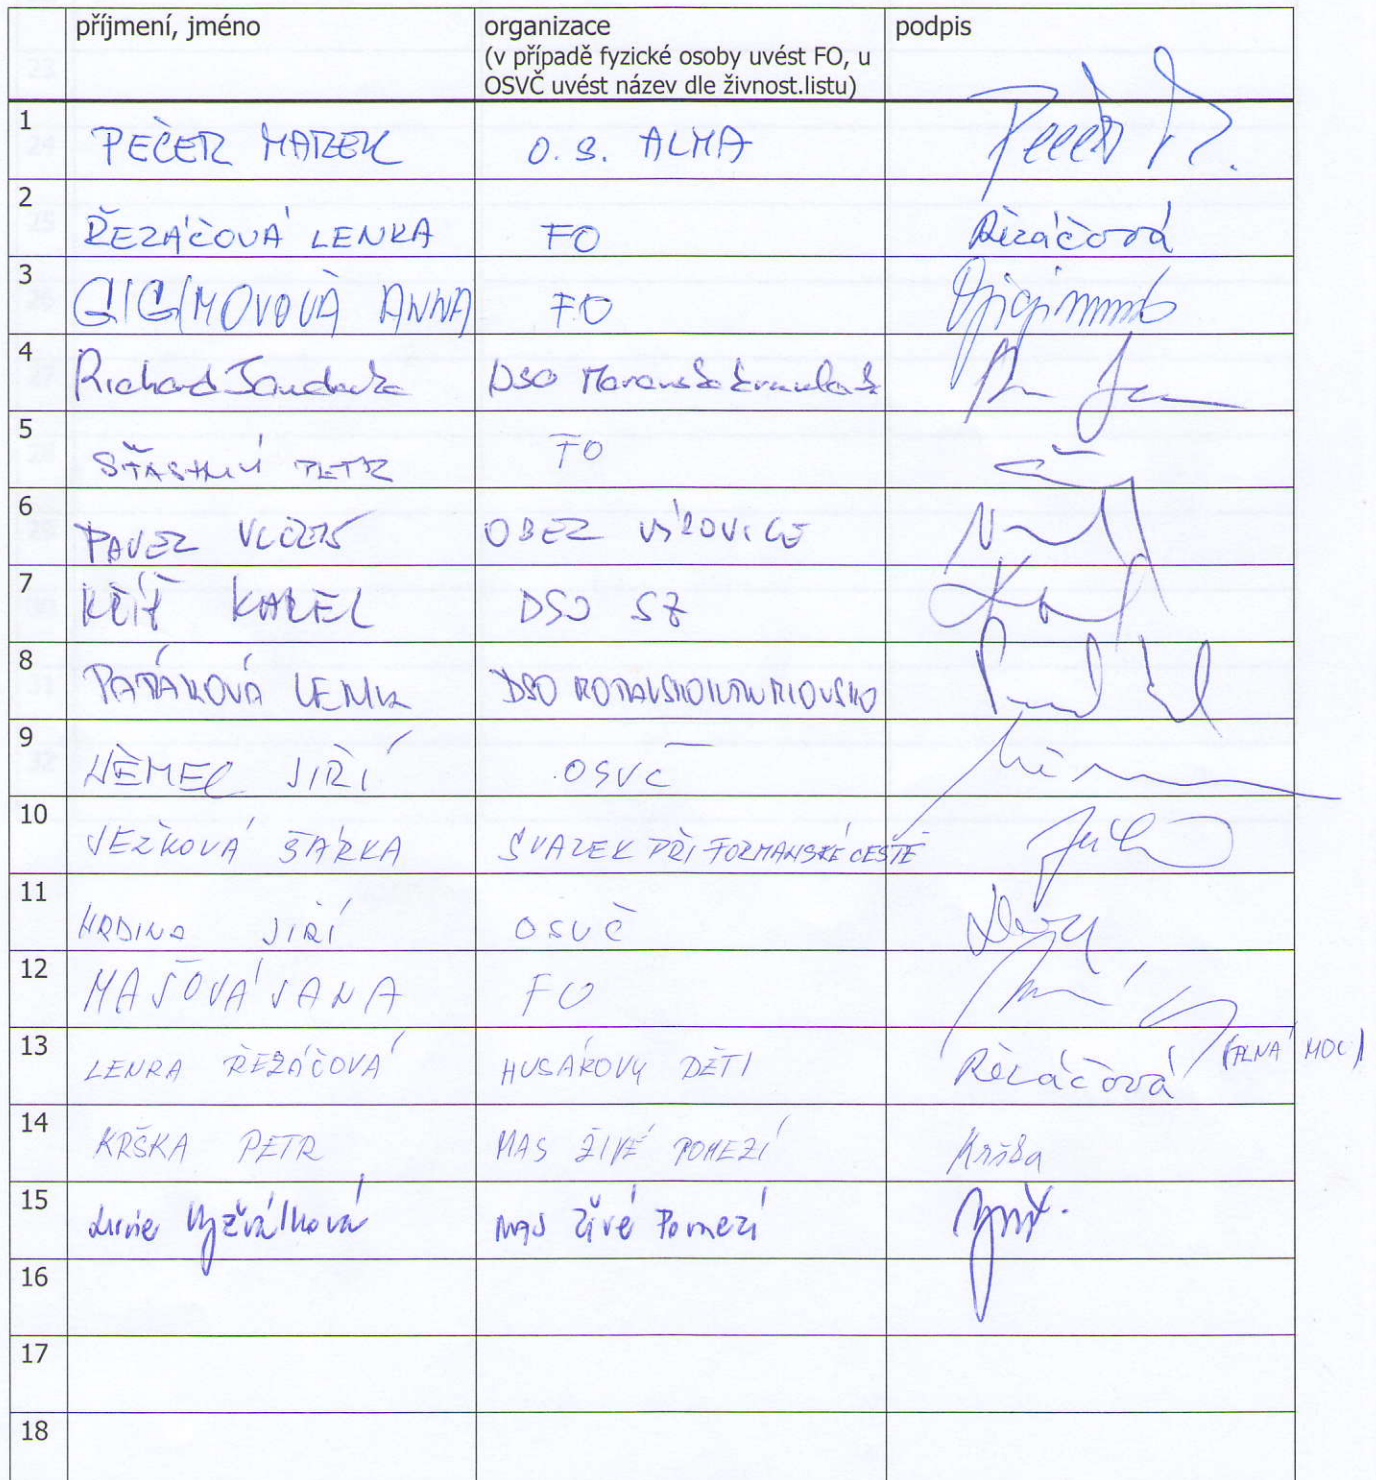 příjmení, jméno organizace podpis
(v případě fyzické osoby uvést FO, u
OSVČ uvést název dle živnost.listu)
1 PEČER MAREK O. S. ALMA
2 ŘEZÁČOVÁ LENKA FO Řezáčová
3 GIGIMOVOVÁ ANNA FO
4 Richard DSO
5 ŠŤASTNÝ PETR FO
6 PAVEL VLČEK OBEC VÍROVICE
7 KŘÍŽ KAREL DSO SZ
8 PATÁKOVÁ DSO
9 NĚMEC JIŘÍ OSVČ
10 JEŽKOVÁ ŠÁRKA SVAZEK PŘI FORMANSKÉ CESTĚ
11 HRDINA JIŘÍ OSVČ
12 MAŠOVÁ JANA FO
13 LENKA ŘEZÁČOVÁ HUSÁKOVY DĚTI Řezáčová (PLNÁ MOC)
14 KRŠKA PETR MAS ŽIVÉ POMEZÍ Krška
15 MAS Živé Pomezí
16
17
18